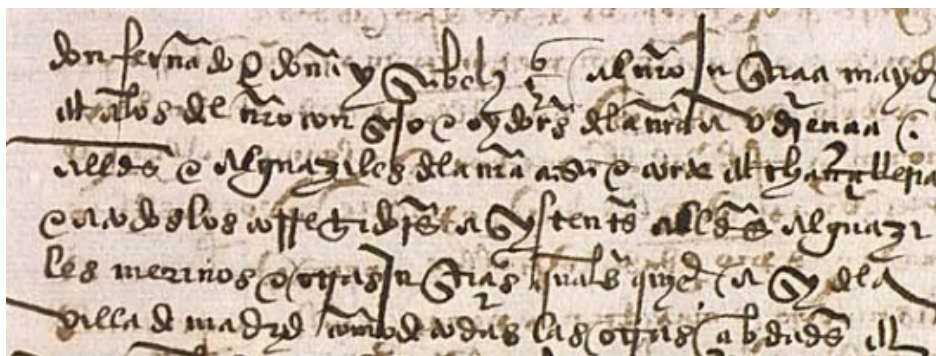 don fernãdo e doña ysabel etc al nrõ justiçia mayor
e a los del nrõ consejo e oydores dela nrã abdiençia
alldes e alguaziles dela nrã casa e corte e chançelleria
e a todos los corregidores asystentes alldes alguazi
les merinos e otras justiçias quales quier asy dela
villa de madrid como de todas las otras çibdades e